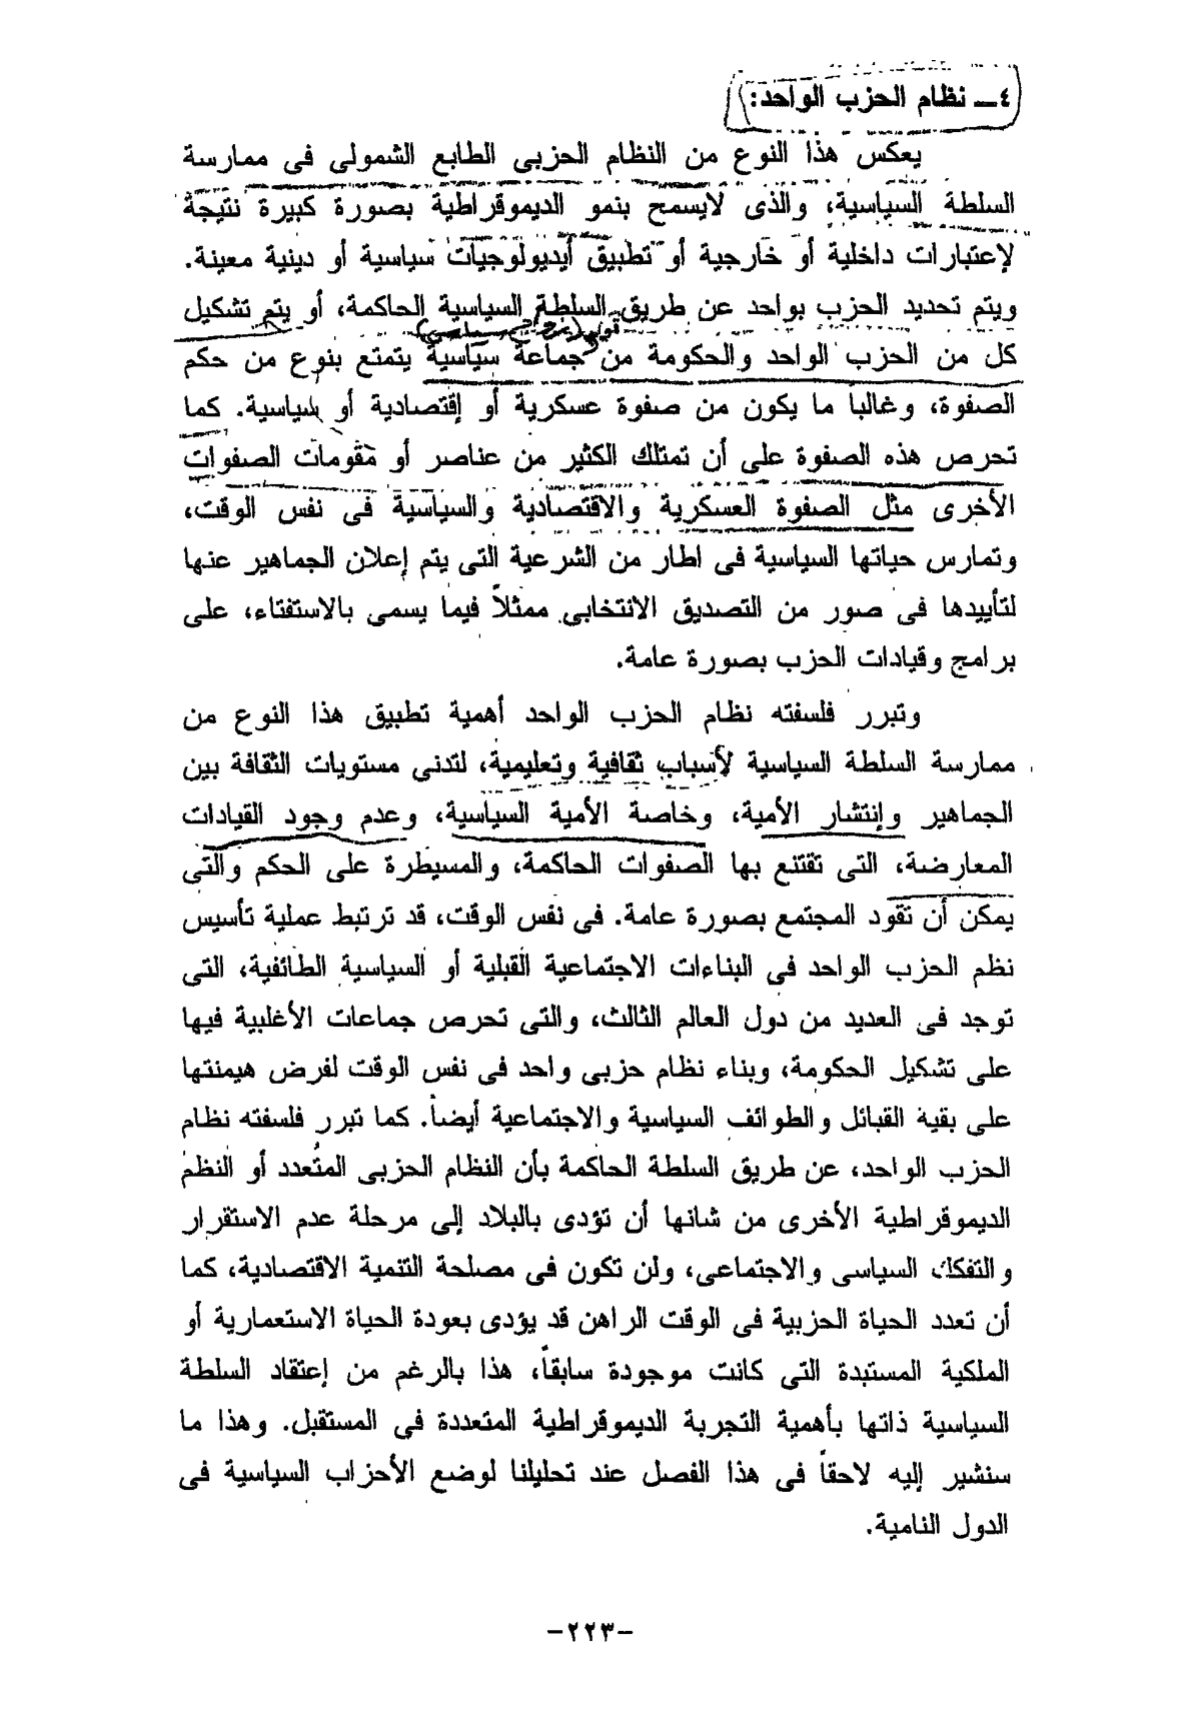 ٤ــ نظام الحزب الواحد:
يعكس هذا النوع من النظام الحزبى الطابع الشمولى فى ممارسة
السلطة السياسية، والذى لايسمح بنمو الديموقراطية بصورة كبيرة نتيجة
لإعتبارات داخلية أو خارجية أو تطبيق أيديولوجيات سياسية أو دينية معينة.
ويتم تحديد الحزب بواحد عن طريق السلطة السياسية الحاكمة، أو يتم تشكيل
كل من الحزب الواحد والحكومة من جماعة سياسية يتمتع بنوع من حكم
الصفوة، وغالباً ما يكون من صفوة عسكرية أو إقتصادية أو سياسية. كما
تحرص هذه الصفوة على أن تمتلك الكثير من عناصر أو مقومات الصفوات
الأخرى مثل الصفوة العسكرية والاقتصادية والسياسية فى نفس الوقت،
وتمارس حياتها السياسية فى اطار من الشرعية التى يتم إعلان الجماهير عنها
لتأييدها فى صور من التصديق الانتخابى ممثلاً فيما يسمى بالاستفتاء، على
برامج وقيادات الحزب بصورة عامة.
وتبرر فلسفته نظام الحزب الواحد أهمية تطبيق هذا النوع من
ممارسة السلطة السياسية لأسباب ثقافية وتعليمية، لتدنى مستويات الثقافة بين
الجماهير وإنتشار الأمية، وخاصة الأمية السياسية، وعدم وجود القيادات
المعارضة، التى تقتنع بها الصفوات الحاكمة، والمسيطرة على الحكم والتى
يمكن أن تقود المجتمع بصورة عامة. فى نفس الوقت، قد ترتبط عملية تأسيس
نظم الحزب الواحد فى البناءات الاجتماعية القبلية أو السياسية الطائفية، التى
توجد فى العديد من دول العالم الثالث، والتى تحرص جماعات الأغلبية فيها
على تشكيل الحكومة، وبناء نظام حزبى واحد فى نفس الوقت لفرض هيمنتها
على بقية القبائل والطوائف السياسية والاجتماعية أيضاً. كما تبرر فلسفته نظام
الحزب الواحد، عن طريق السلطة الحاكمة بأن النظام الحزبى المتعدد أو النظم
الديموقراطية الأخرى من شانها أن تؤدى بالبلاد إلى مرحلة عدم الاستقرار
والتفكك السياسى والاجتماعى، ولن تكون فى مصلحة التنمية الاقتصادية، كما
أن تعدد الحياة الحزبية فى الوقت الراهن قد يؤدى بعودة الحياة الاستعمارية أو
الملكية المستبدة التى كانت موجودة سابقاً، هذا بالرغم من إعتقاد السلطة
السياسية ذاتها بأهمية التجربة الديموقراطية المتعددة فى المستقبل. وهذا ما
سنشير إليه لاحقاً فى هذا الفصل عند تحليلنا لوضع الأحزاب السياسية فى
الدول النامية.
-٢٢٣-